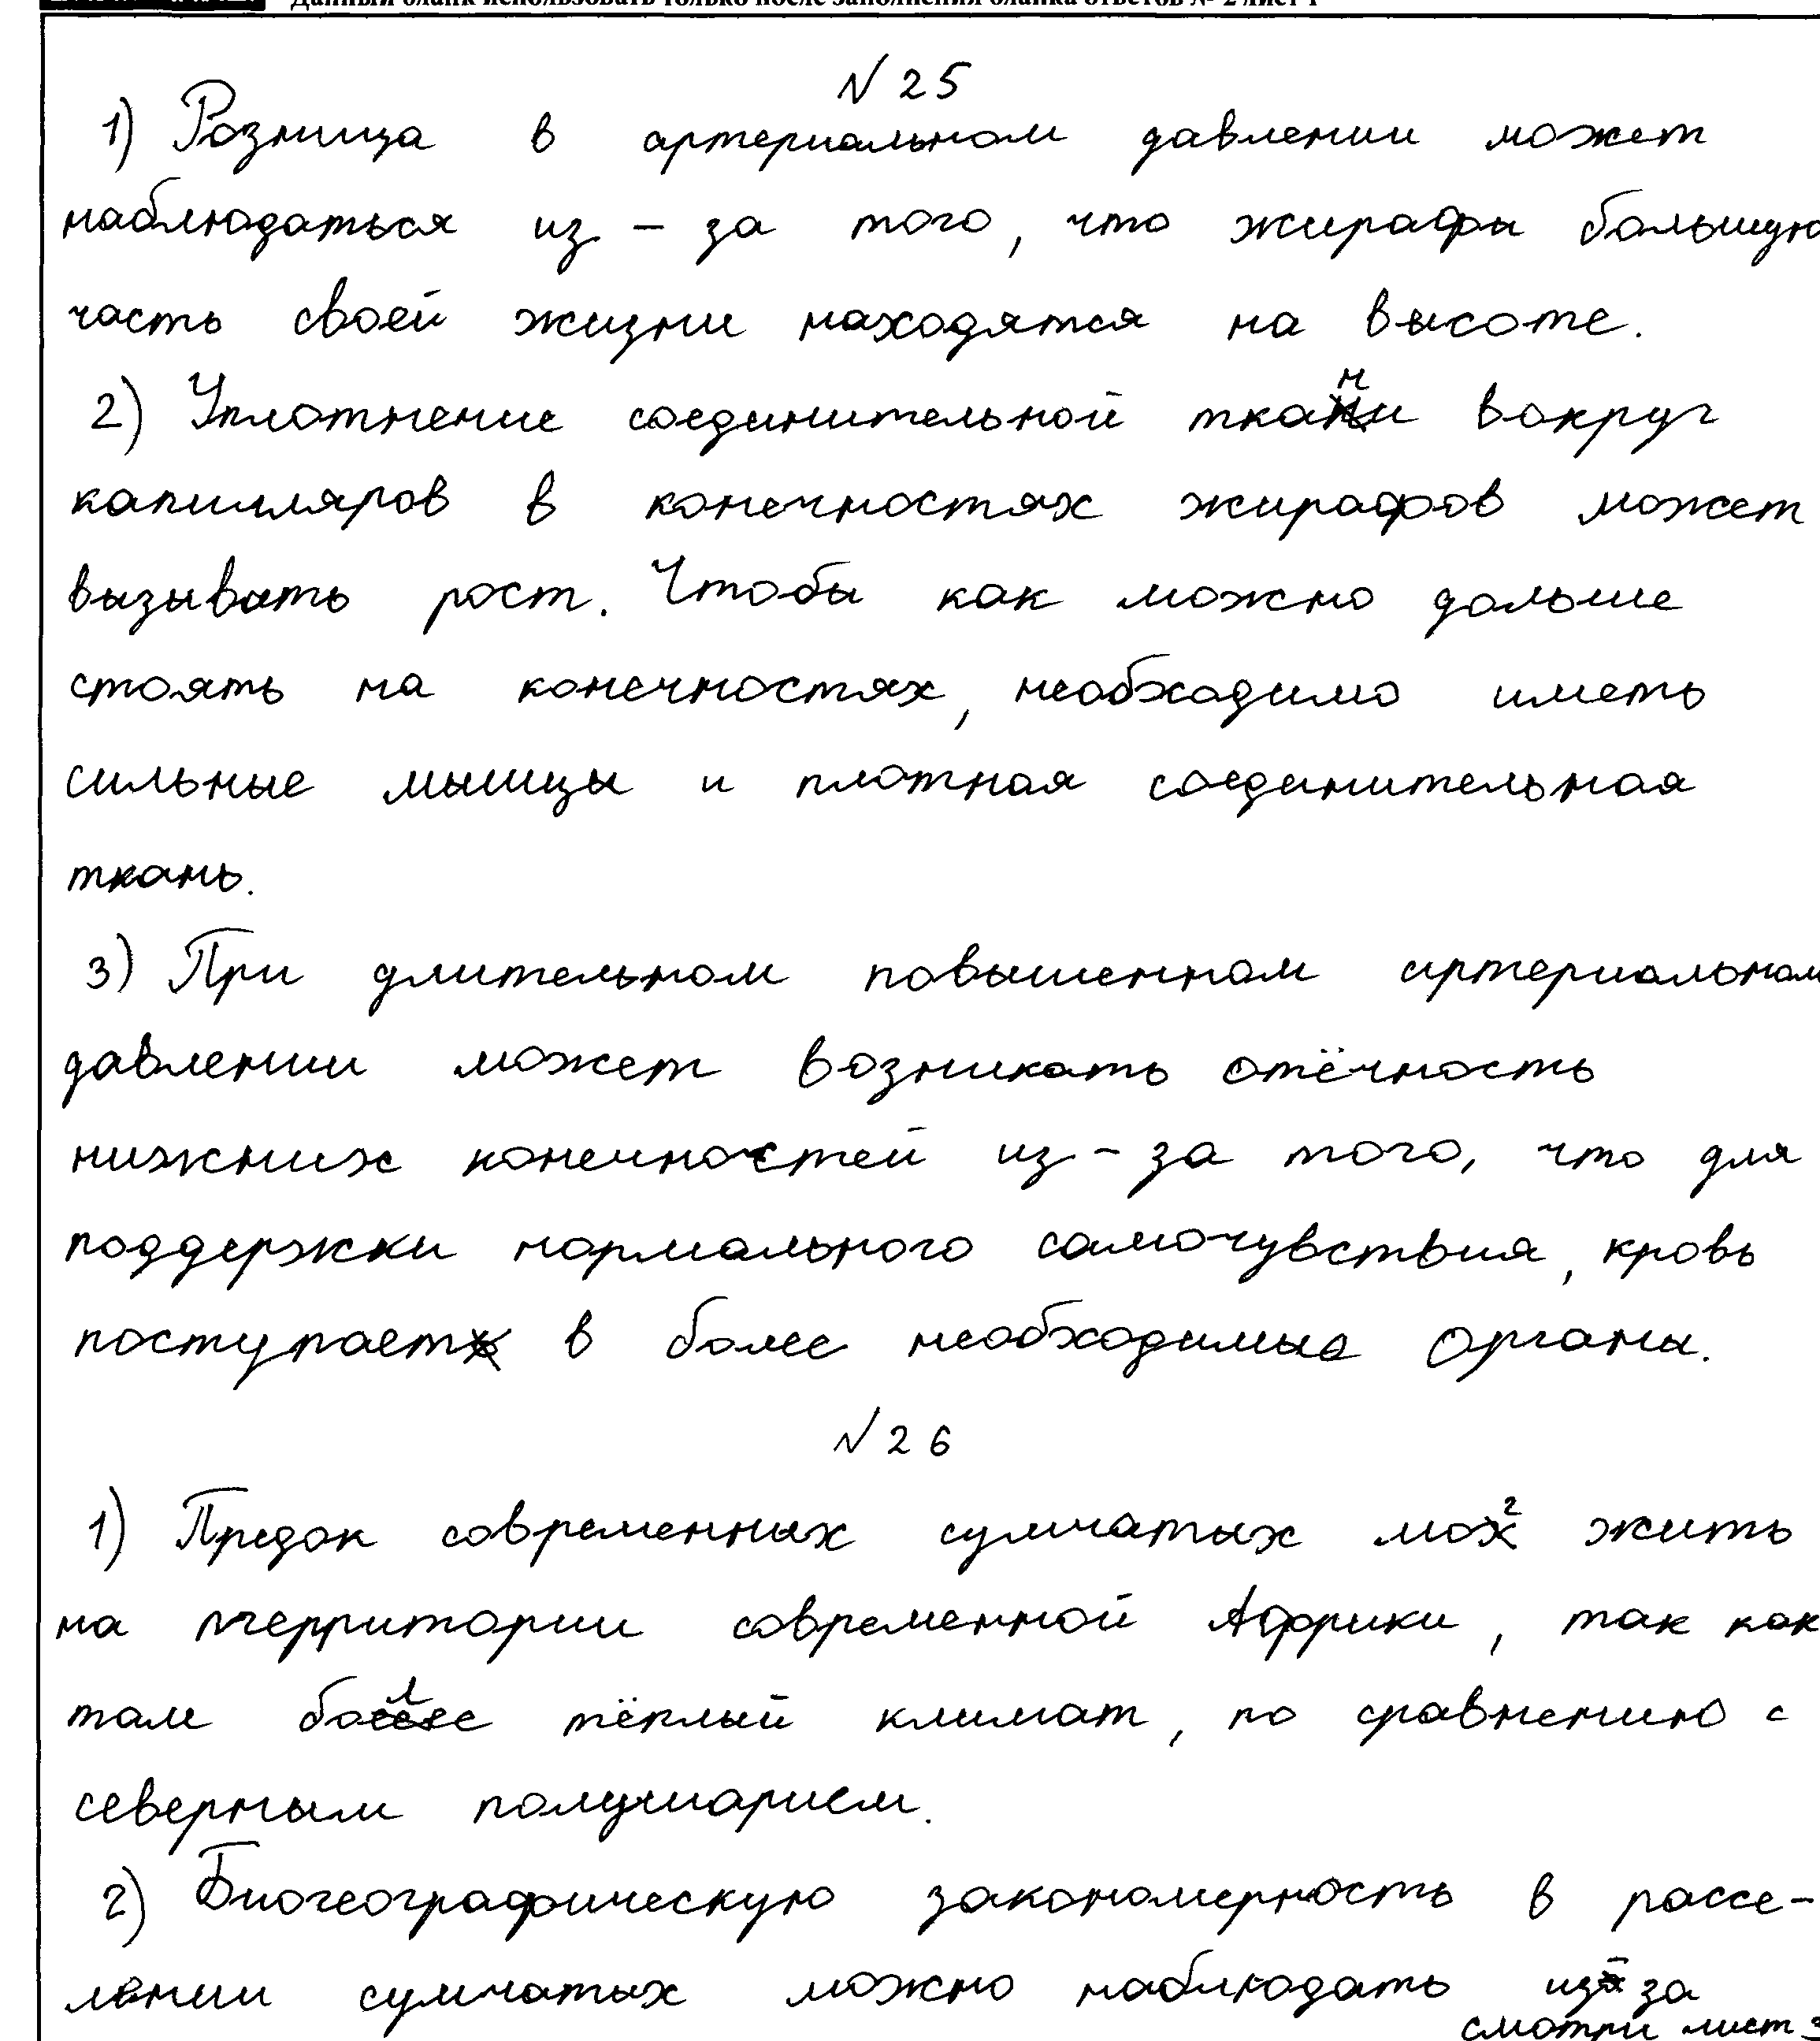 Данный бланк использовать только после заполнения бланка ответов № 2 лист 1
№ 25
1) Разница в артериальном давлении может
наблюдаться из-за того, что жирафы большую
часть своей жизни находятся на высоте.
2) Уплотнение соединительной ткани вокруг
капилляров в конечностях жирафов может
вызывать рост. Чтобы как можно дольше
стоять на конечностях, необходимо иметь
сильные мышцы и плотная соединительная
ткань.
3) При длительном повышенном артериальном
давлении может возникать отёчность
нижних конечностей из-за того, что для
поддержки нормального самочувствия, кровь
поступает в более необходимые органы.
№ 26
1) Предок современных сумчатых мог жить
на территории современной Африки, так как
там более тёплый климат, по сравнению с
северным полушарием.
2) Биогеографическую закономерность в рассе-
лении сумчатых можно наблюдать из-за
смотри лист 3